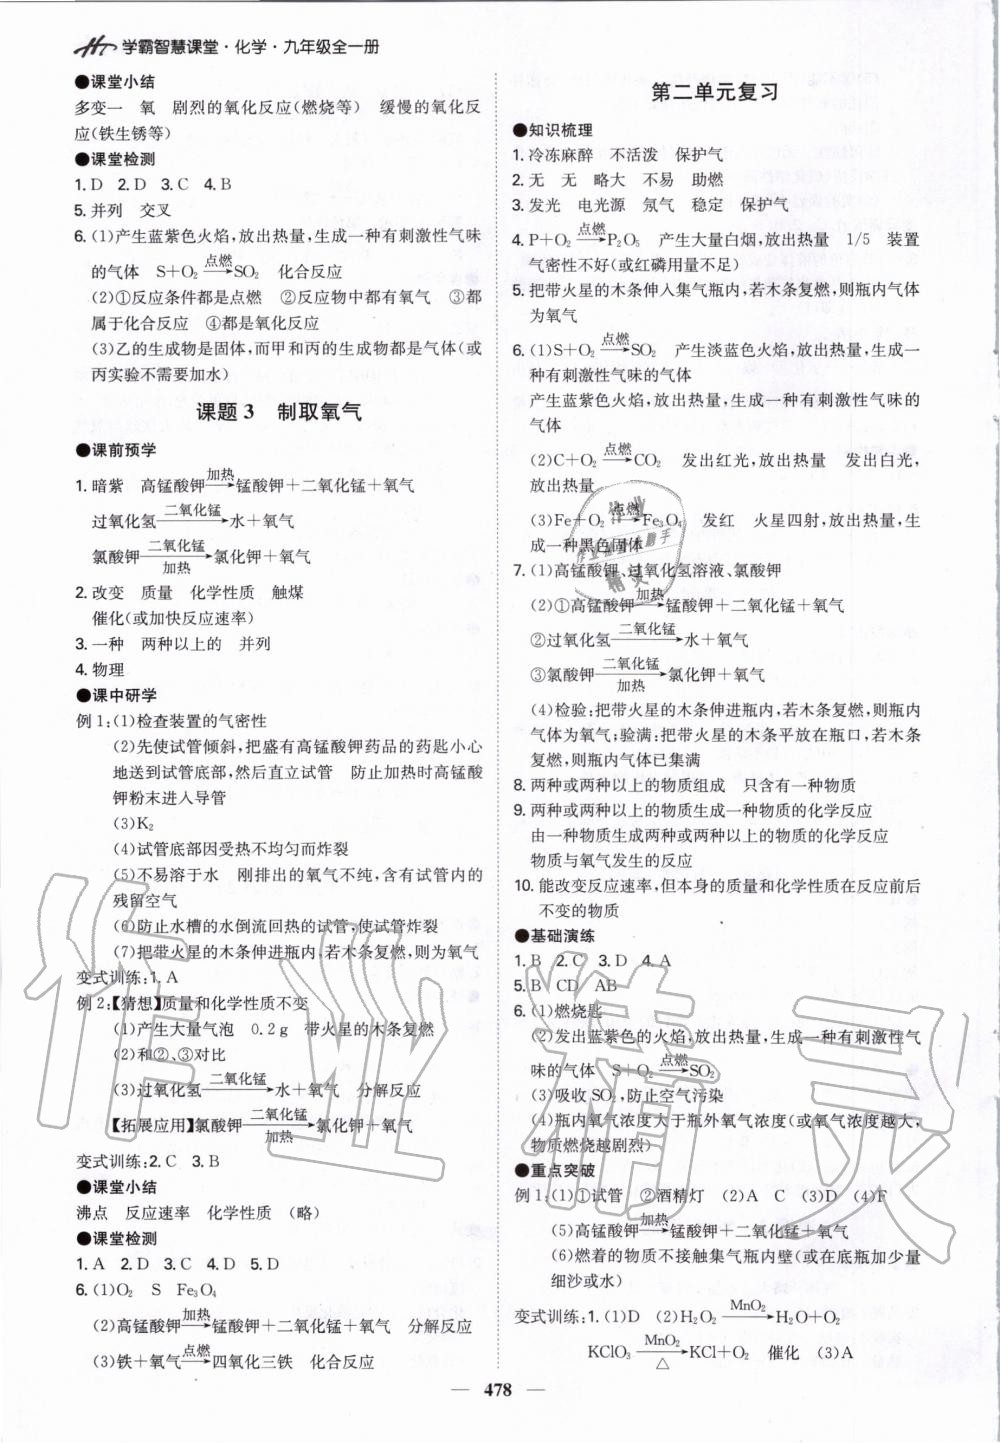 学霸智慧课堂·化学·九年级全一册
●课堂小结
多变一　氧　剧烈的氧化反应(燃烧等)　缓慢的氧化反
应(铁生锈等)
●课堂检测
1. D　2. D　3. C　4. B
5. 并列　交叉
6. (1)产生蓝紫色火焰,放出热量,生成一种有刺激性气味
的气体　S+O₂ —点燃→ SO₂　化合反应
(2)①反应条件都是点燃　②反应物中都有氧气　③都
属于化合反应　④都是氧化反应
(3)乙的生成物是固体,而甲和丙的生成物都是气体(或
丙实验不需要加水)
课题 3　制取氧气
●课前预学
1. 暗紫　高锰酸钾 —加热→ 锰酸钾+二氧化锰+氧气
过氧化氢 —二氧化锰→ 水+氧气
氯酸钾 —二氧化锰/加热→ 氯化钾+氧气
2. 改变　质量　化学性质　触煤
催化(或加快反应速率)
3. 一种　两种以上的　并列
4. 物理
●课中研学
例 1:(1)检查装置的气密性
(2)先使试管倾斜,把盛有高锰酸钾药品的药匙小心
地送到试管底部,然后直立试管　防止加热时高锰酸
钾粉末进入导管
(3)K₂
(4)试管底部因受热不均匀而炸裂
(5)不易溶于水　刚排出的氧气不纯,含有试管内的
残留空气
(6)防止水槽的水倒流回热的试管,使试管炸裂
(7)把带火星的木条伸进瓶内,若木条复燃,则为氧气
变式训练:1. A
例 2:【猜想】质量和化学性质不变
(1)产生大量气泡　0.2 g　带火星的木条复燃
(2)和②、③对比
(3)过氧化氢 —二氧化锰→ 水+氧气　分解反应
【拓展应用】氯酸钾 —二氧化锰/加热→ 氯化钾+氧气
变式训练:2. C　3. B
●课堂小结
沸点　反应速率　化学性质　(略)
●课堂检测
1. A　2. D　3. C　4. D　5. D
6. (1)O₂　S　Fe₃O₄
(2)高锰酸钾 —加热→ 锰酸钾+二氧化锰+氧气　分解反应
(3)铁+氧气 —点燃→ 四氧化三铁　化合反应
第二单元复习
●知识梳理
1. 冷冻麻醉　不活泼　保护气
2. 无　无　略大　不易　助燃
3. 发光　电光源　氖气　稳定　保护气
4. P+O₂ —点燃→ P₂O₅　产生大量白烟,放出热量　1/5　装置
气密性不好(或红磷用量不足)
5. 把带火星的木条伸入集气瓶内,若木条复燃,则瓶内气体
为氧气
6. (1)S+O₂ —点燃→ SO₂　产生淡蓝色火焰,放出热量,生成一
种有刺激性气味的气体
产生蓝紫色火焰,放出热量,生成一种有刺激性气味的
气体
(2)C+O₂ —点燃→ CO₂　发出红光,放出热量　发出白光,
放出热量
(3)Fe+O₂ —点燃→ Fe₃O₄　发红　火星四射,放出热量,生
成一种黑色固体
7. (1)高锰酸钾、过氧化氢溶液、氯酸钾
(2)①高锰酸钾 —加热→ 锰酸钾+二氧化锰+氧气
②过氧化氢 —二氧化锰→ 水+氧气
③氯酸钾 —二氧化锰/加热→ 氯化钾+氧气
(4)检验:把带火星的木条伸进瓶内,若木条复燃,则瓶内
气体为氧气;验满:把带火星的木条平放在瓶口,若木条
复燃,则瓶内气体已集满
8. 两种或两种以上的物质组成　只含有一种物质
9. 两种或两种以上的物质生成一种物质的化学反应
由一种物质生成两种或两种以上的物质的化学反应
物质与氧气发生的反应
10. 能改变反应速率,但本身的质量和化学性质在反应前后
不变的物质
●基础演练
1. B　2. C　3. D　4. A
5. B　CD　AB
6. (1)燃烧匙
(2)发出蓝紫色的火焰,放出热量,生成一种有刺激性气
味的气体　S+O₂ —点燃→ SO₂
(3)吸收SO₂,防止空气污染
(4)瓶内氧气浓度大于瓶外氧气浓度(或氧气浓度越大,
物质燃烧越剧烈)
●重点突破
例 1:(1)①试管　②酒精灯　(2)A　C　(3)D　(4)F
(5)高锰酸钾 —加热→ 锰酸钾+二氧化锰+氧气
(6)燃着的物质不接触集气瓶内壁(或在底瓶加少量
细沙或水)
变式训练:1. (1)D　(2)H₂O₂ —MnO₂→ H₂O+O₂
KClO₃ —MnO₂/△→ KCl+O₂　催化　(3)A
478
作业精灵